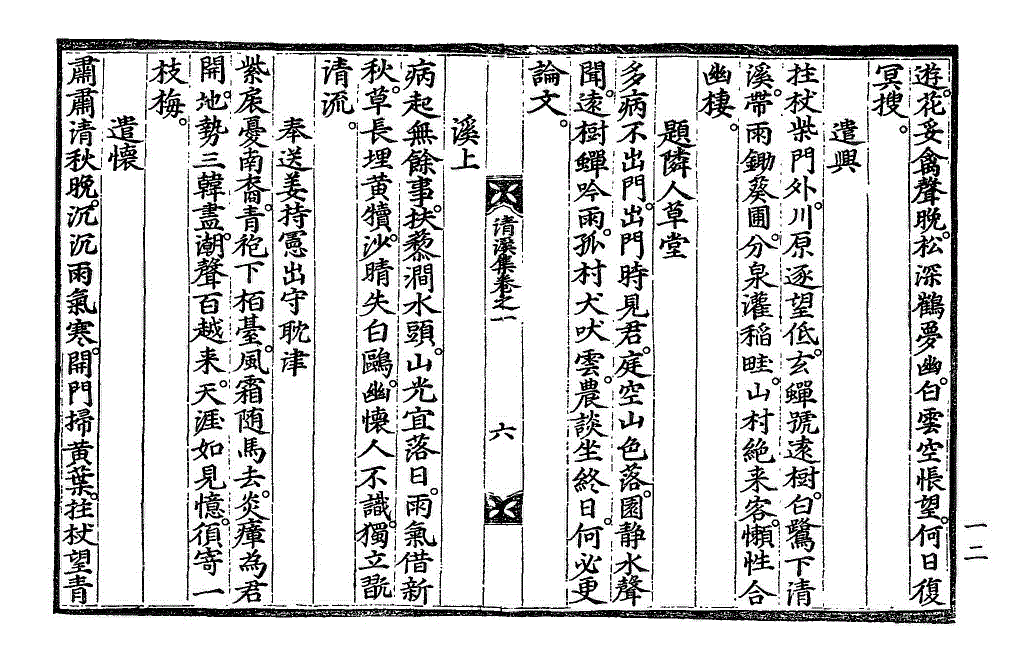 遊。花妥禽聲晚。松深鶴夢幽。白雲空悵望。何日復
冥搜。
遣興
拄杖柴門外。川原逐望低。玄蟬號遠樹。白鷺下清
溪。帶雨鋤葵圃。分泉灌稻畦。山村絶来客。懶性合
幽棲。
題隣人草堂
多病不出門。出門時見君。庭空山色落。園静水聲
聞。遠樹蟬吟雨。孤村犬吠雲。農談坐終日。何必更
論文。
清溪集卷之一
六
溪上
病起無餘事。扶藜澗水頭。山光宜落日。雨氣借新
秋。草長埋黄犢。沙晴失白鷗。幽懷人不識。獨立翫
清流。
奉送姜持憲出守耽津
紫宸憂南裔。青袍下栢臺。風霜随馬去。炎瘴為君
開。地勢三韓盡。潮聲百越来。天涯如見憶。湏寄一
枝梅。
遣懷
肅肅清秋晚。沉沉雨氣寒。開門掃黄葉。拄杖望青
一二